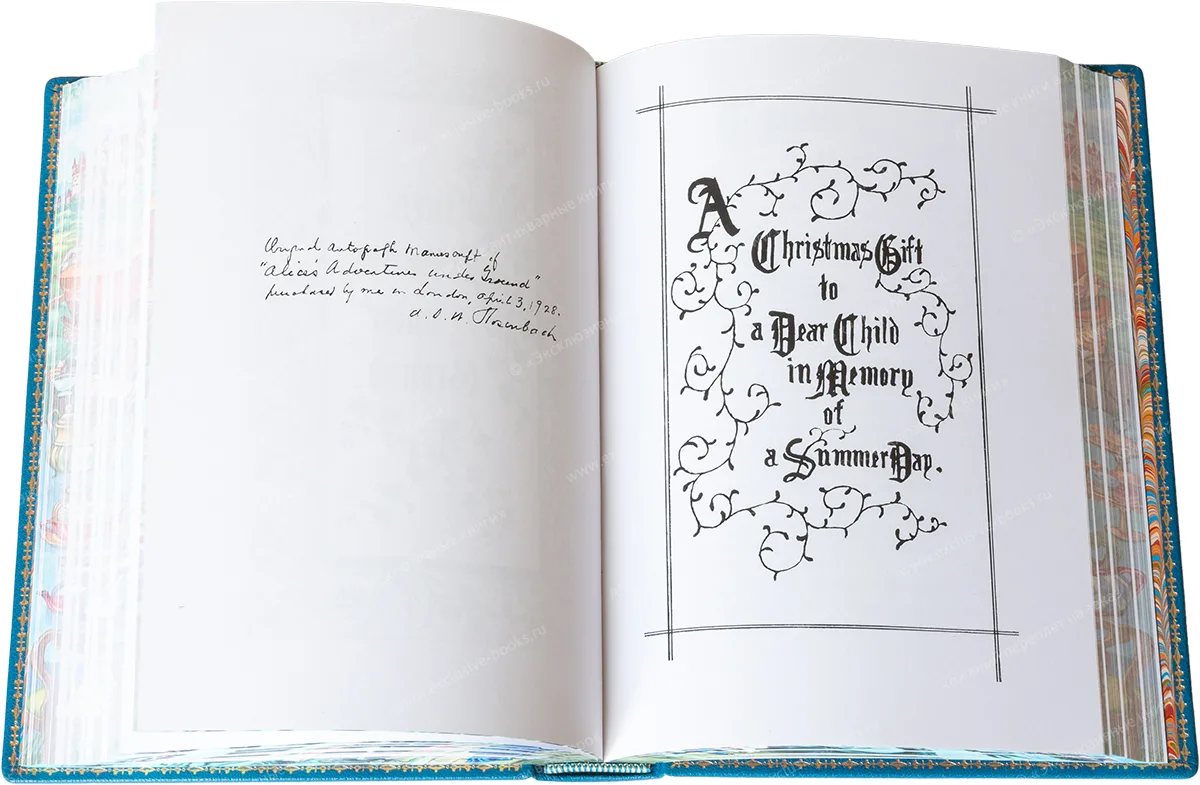 Original Autograph Manuscript of
"Alice's Adventures under Ground"
purchased by me in London, April 3, 1928.
A. S. W. Rosenbach
A
Christmas Gift
to
a Dear Child
in Memory
of
a Summer Day.